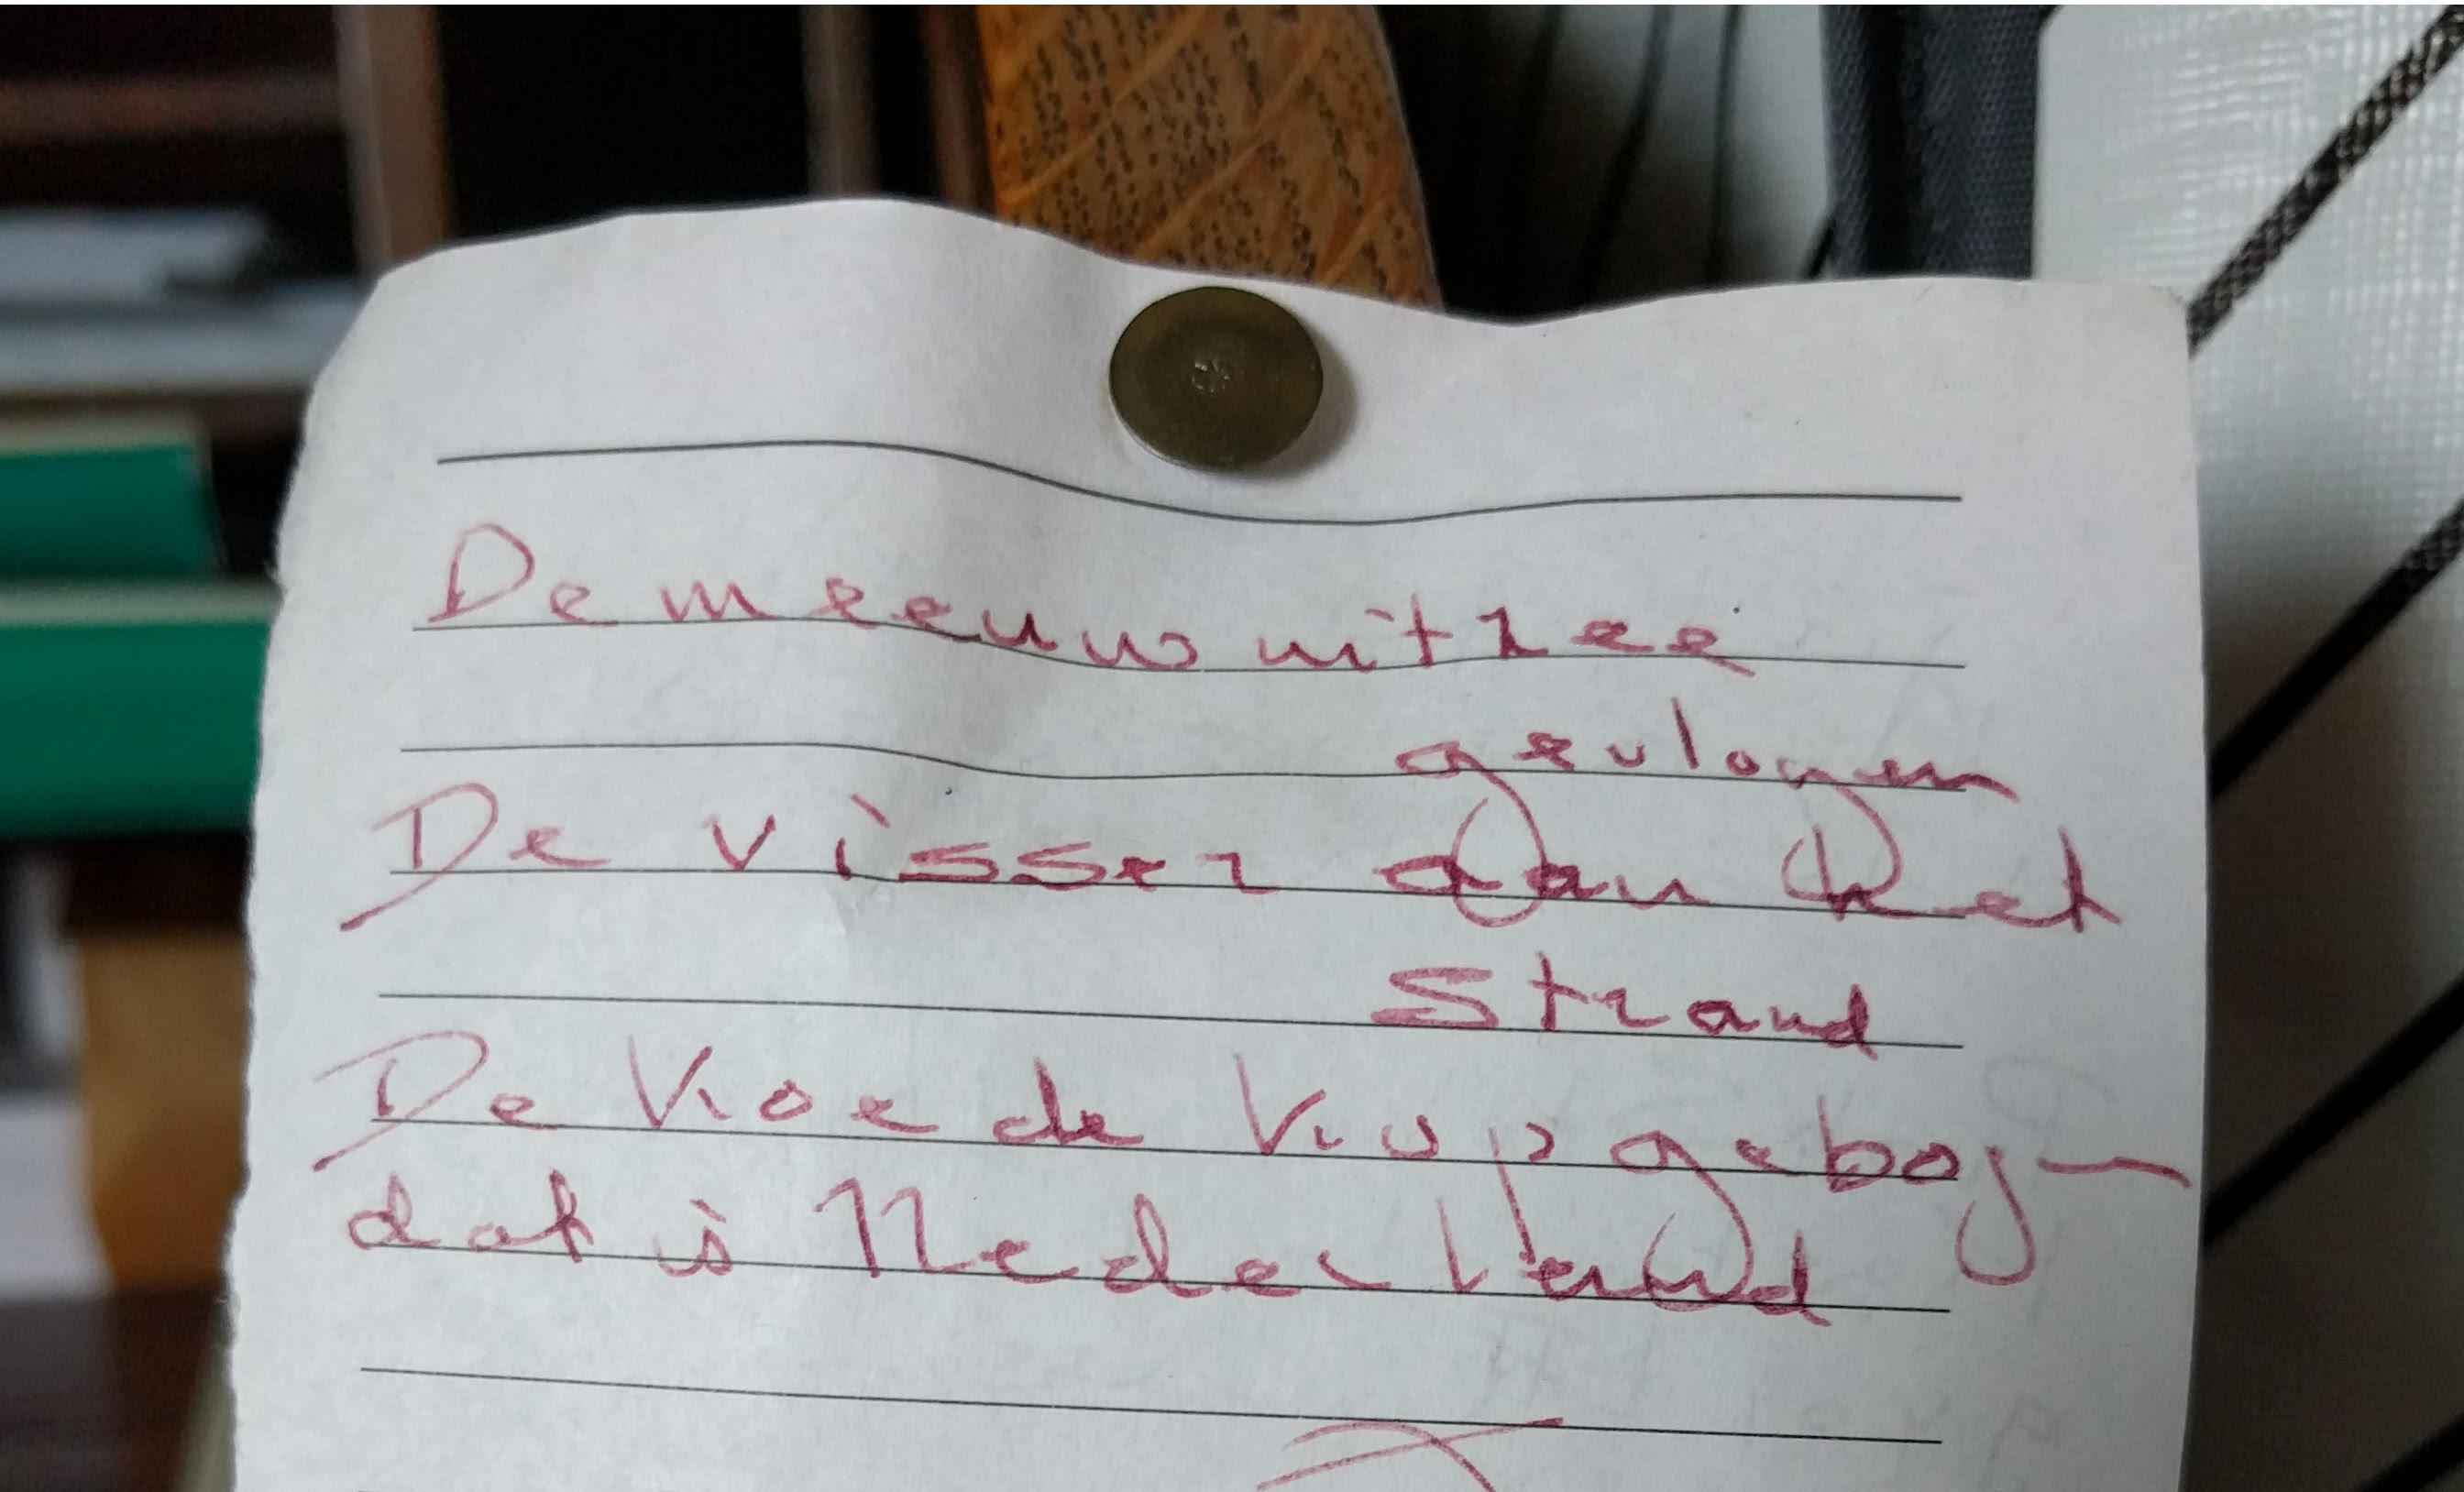 De meeuw uit zee
gevlogen
De visser aan het
strand
De Koe de Kop gebogen
dat is Nederland